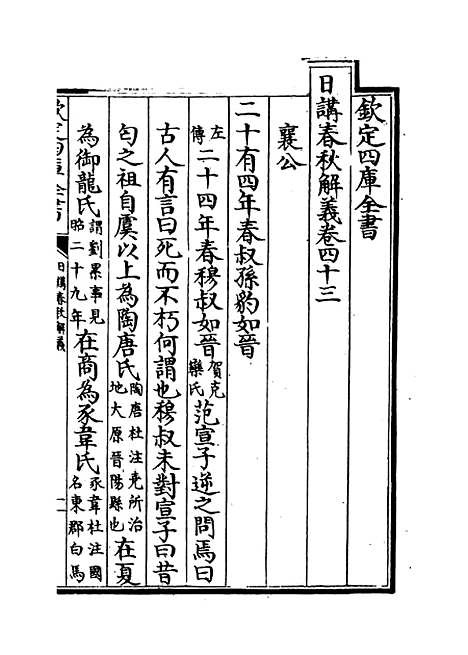 欽定四庫全書
日講春秋解義卷四十三
襄公
二十有四年春叔孫豹如晉
左傳二十四年春穆叔如晉賀克欒氏范宣子逆之問焉曰
古人有言曰死而不朽何謂也穆叔未對宣子曰昔
匄之祖自虞以上為陶唐氏陶唐杜注堯所治地大原晉陽縣也在夏
為御龍氏謂劉累事見昭二十九年在商為豕韋氏豕韋杜注國名東郡白馬
欽定四庫全書
日講春秋解義
一